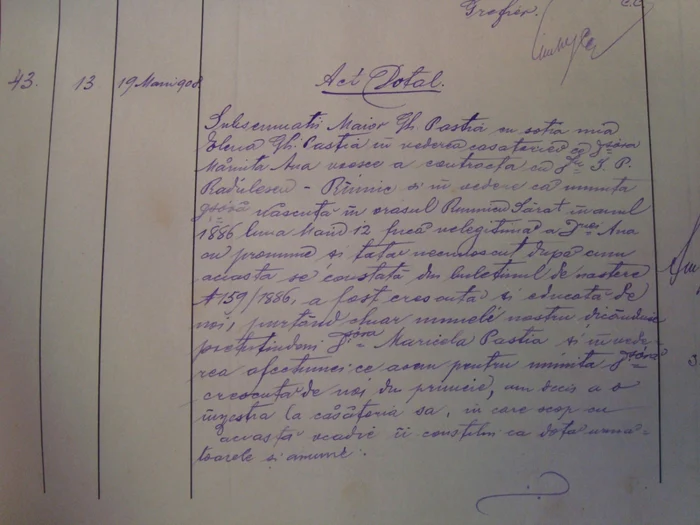 Grefier.
43. 13 19 Martie 908.
Act Dotal.
Subsemnatii Maior Gh. Pastia cu sotia mea
Elena Gh. Pastia în vederea casatoriei ce
Ana voesce a contracta cu I. P.
Radulescu - Rîmnic si în vedere că numita
Nascută în orasul Rimnicu Sărat în anul
1886 luna 12 fiică nelegitimă a Ana
cu pronume si tata necunoscut după cum
aceasta se constată din buletinul de nastere
159/1886, a fost crescută si educată de
noi, purtând chiar numele nostru
Maricela Pastia si în vede-
rea afectiunei ce avem pentru numita
crescută de noi din pruncie, am decis a o
înzestra la căsătoria sa, în care scop cu
aceasta ii constituim ca dotă urmă-
toarele si anume: